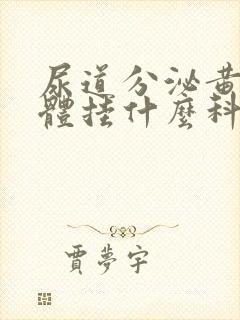 尿道分泌黃
體挂什麼科
賈夢宇